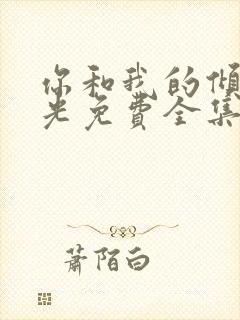 你和我的倾
光免費全集
蕭陌白